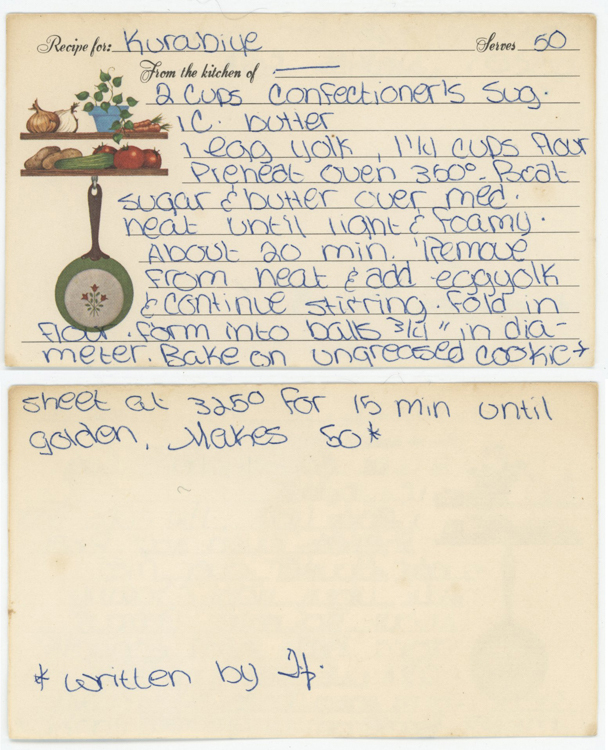 Recipe for: Kurabiye Serves 50
From the kitchen of
2 cups confectioner's sug.
1 C. butter
1 egg yolk, 1 1/4 cups flour
Preheat oven 350°. Beat
sugar & butter over med.
heat until light & foamy.
About 20 min. Remove
from heat & add eggyolk
& continue stirring. Fold in
flour. Form into balls 3/4" in dia-
meter. Bake on ungreased cookie →
sheet at 325° for 15 min until
golden. Makes 50*
* written by